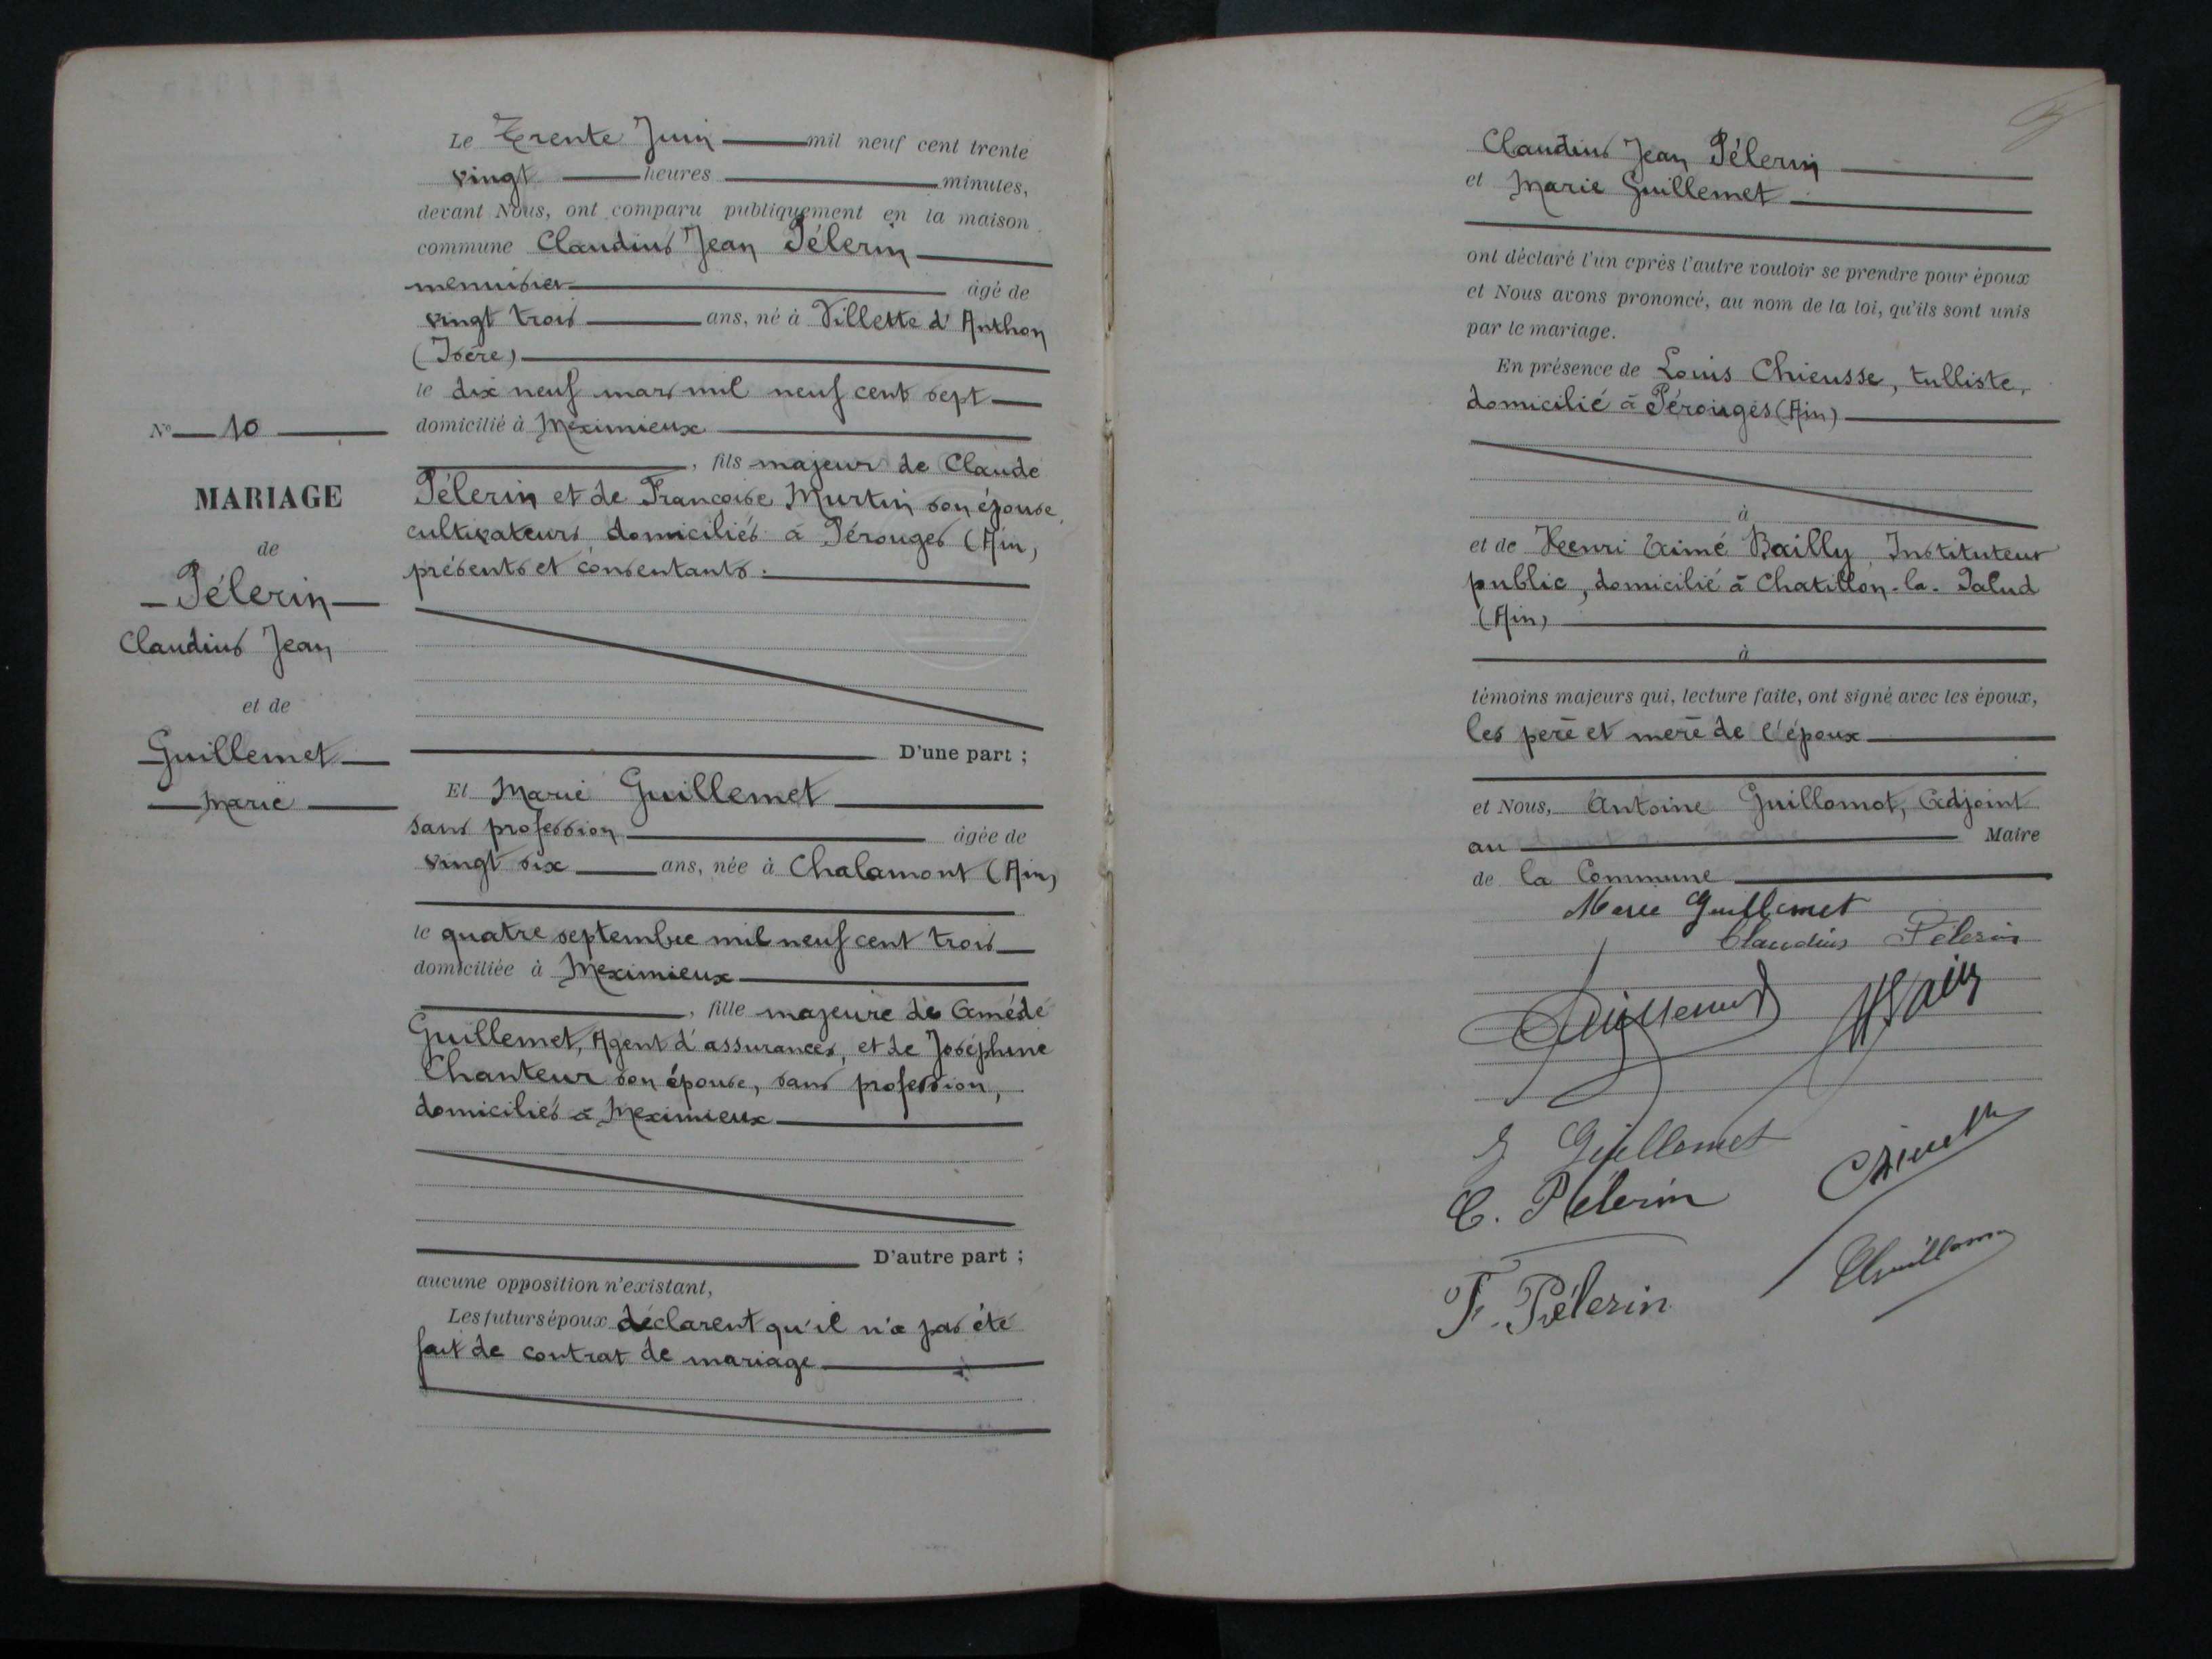 Le Trente Juin mil neuf cent trente
vingt heures minutes,
devant Nous, ont comparu publiquement en la maison
commune Claudius Jean Pélerin
menuisier âgé de
vingt trois ans, né à Villette d'Anthon
(Isère)
le dix neuf mars mil neuf cent sept
domicilié à Meximieux
, fils majeur de Claude
Pélerin et de Françoise Murtin son épouse,
cultivateurs domiciliés à Pérouges (Ain)
présents et consentants.
D'une part ;
Et Marie Guillemet
sans profession âgée de
vingt six ans, née à Chalamont (Ain)
le quatre septembre mil neuf cent trois
domiciliée à Meximieux
, fille majeure de Amédé
Guillemet, Agent d'assurances, et de Joséphine
Chanteur son épouse, sans profession,
domiciliés à Meximieux
D'autre part ;
aucune opposition n'existant,
Les futurs époux déclarent qu'il n'a pas été
fait de contrat de mariage
No 10
MARIAGE
de
Pélerin
Claudius Jean
et de
Guillemet
Marie
Claudius Jean Pélerin
et Marie Guillemet
ont déclaré l'un après l'autre vouloir se prendre pour époux
et Nous avons prononcé, au nom de la loi, qu'ils sont unis
par le mariage.
En présence de Louis Chieusse, tulliste,
domicilié à Pérouges (Ain)
à
et de Henri Aimé Bailly, Instituteur
public, domicilié à Chatillon-la-Palud
(Ain)
à
témoins majeurs qui, lecture faite, ont signé avec les époux,
les père et mère de l'époux
et Nous, Antoine Guillomot, Adjoint
au Maire
de la Commune
Marie Guillemet
Claudius Pélerin
Guillemet
J Guillemet
C. Pélerin
F. Pélerin